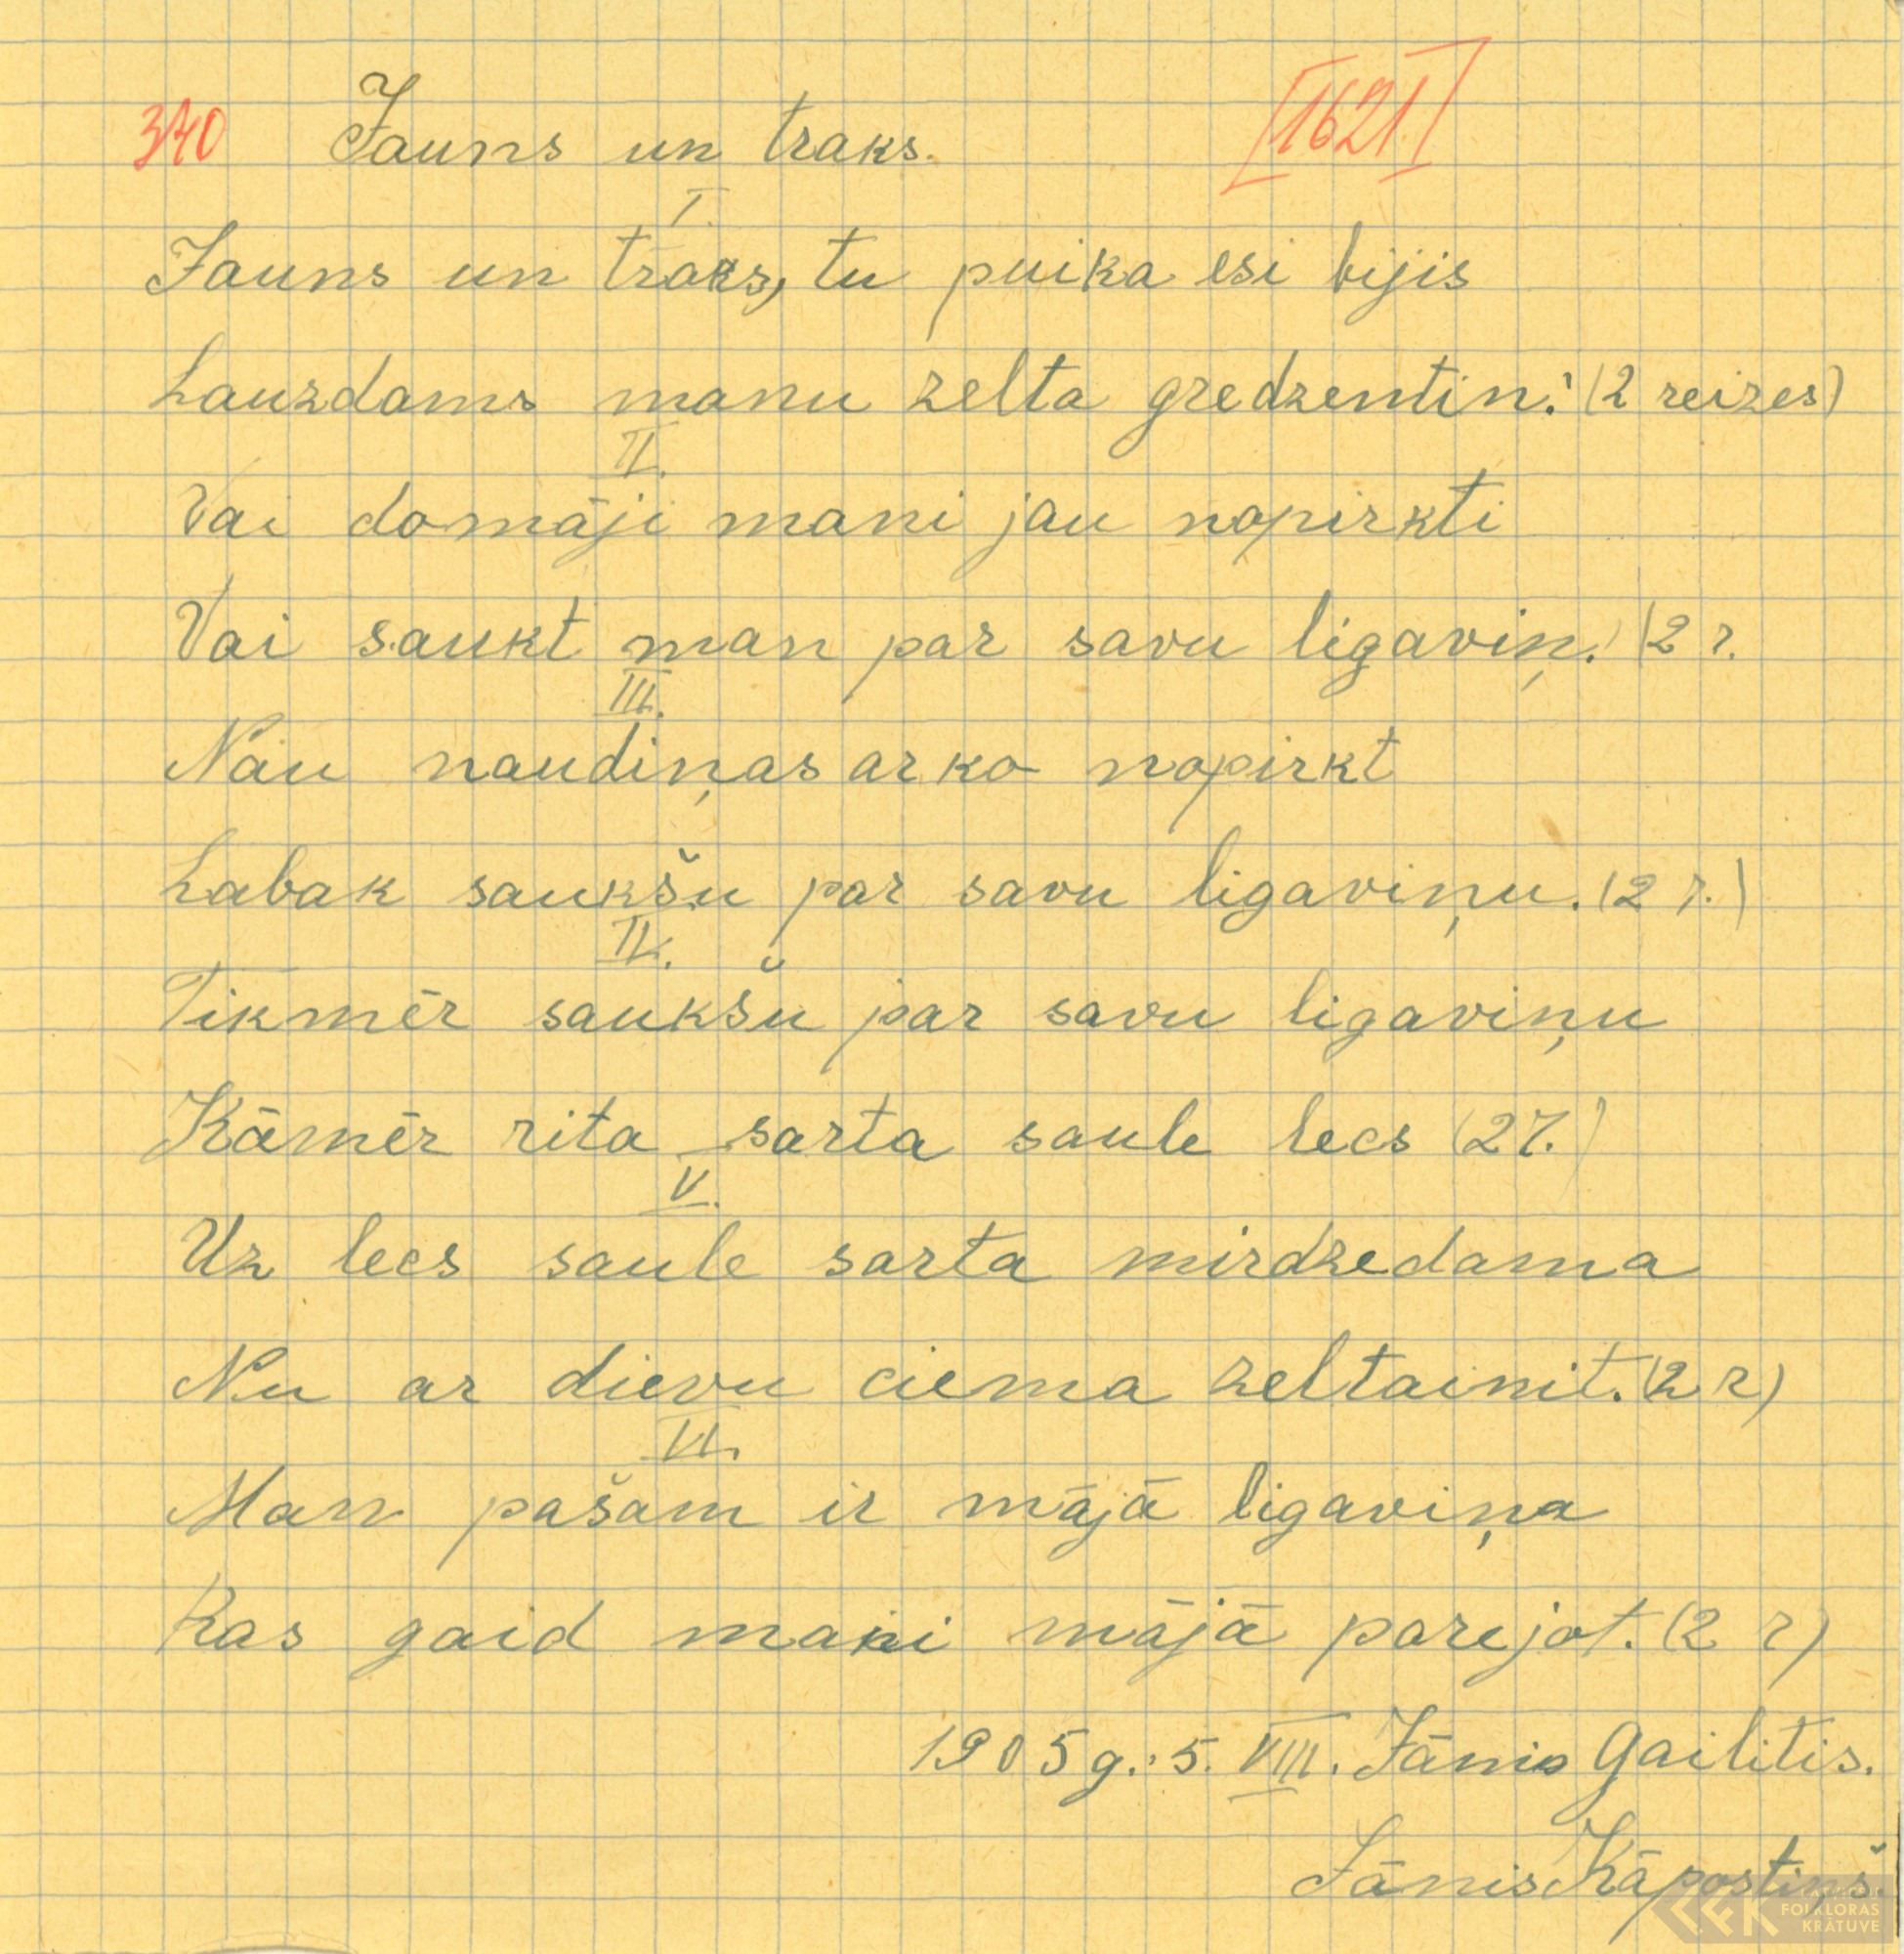 340 Jauns un traks. [1621]
I.
Jauns un traks, tu puika esi bijis
Lauzdams manu zelta gredzentin! (2 reizes)
II.
Vai domāji mani jau nopirkti
Vai saukt man par savu ligaviņ. (2 r.
III.
Nau naudiņas ar ko nopirkt
Labak saukšu par savu ligaviņu. (2 r.)
IV.
Tikmēr saukšu par savu ligaviņu
Kāmēr rita sarta saule lecs (2 r.)
V.
Uz lecs saule sarta mirdzedama
Nu ar dievu ciema zeltainit. (2 r)
VI.
Man pašam ir mājā ligaviņa
Kas gaid mani mājā parejot. (2 r)
1905 g. 5. VIII. Jānis Gailitis.
Jānis Kāpostiņš.
FOLKLORAS
KRĀTUVE